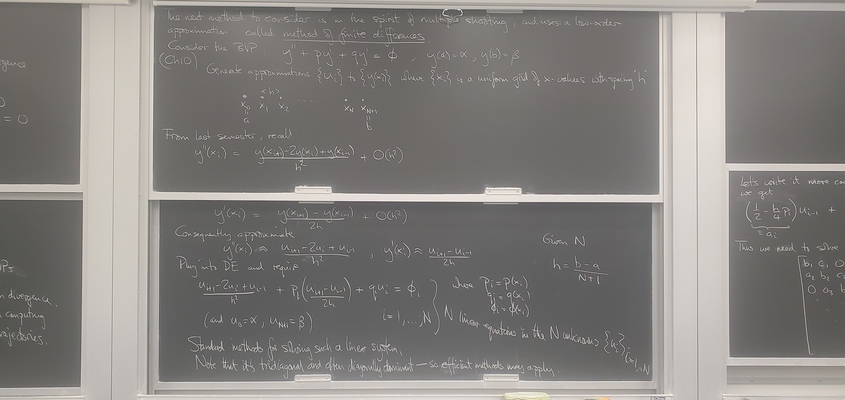 The next method to consider is in the spirit of multiple shooting, and uses a low-order
approximation called method of finite differences
Consider the BVP y'' + py' + qy = ϕ , y(a)=α, y(b)=β
(Ch10) Generate approximations {u_i} to {y(x_i)} where {x_i} is a uniform grid of x-values with spacing "h"
<h>
x_0 x_1 x_2 ... x_N x_{N+1}
a b
From last semester, recall
y''(x_i) = (y(x_{i+1}) - 2y(x_i) + y(x_{i-1}))/h² + O(h²)
y'(x_i) = (y(x_{i+1}) - y(x_{i-1}))/2h + O(h²)
Consequently approximate
y''(x_i) ≈ (u_{i+1} - 2u_i + u_{i-1})/h² , y'(x_i) ≈ (u_{i+1} - u_{i-1})/2h
Plug into DE and require
(u_{i+1} - 2u_i + u_{i-1})/h² + p_i((u_{i+1} - u_{i-1})/2h) + q_i u_i = ϕ_i
i = 1, ..., N
(and u_0 = α, u_{N+1} = β)
where p_i = p(x_i)
q_i = q(x_i)
ϕ_i = ϕ(x_i)
Given N
h = (b-a)/(N+1)
N linear equations in the N unknowns {u_i}_{i=1,..,N}
Standard methods for solving such a linear system.
Note that it's tridiagonal and often diagonally dominant — so efficient methods may apply
= 0
n divergence,
computing
trajectories.
Let's write it more
we get
(1/2 - h/4 p_i) u_{i-1} +
= a_i
Thus we need to solve
b_1 c_1 0
a_2 b_2 c_2
0 a_3 b